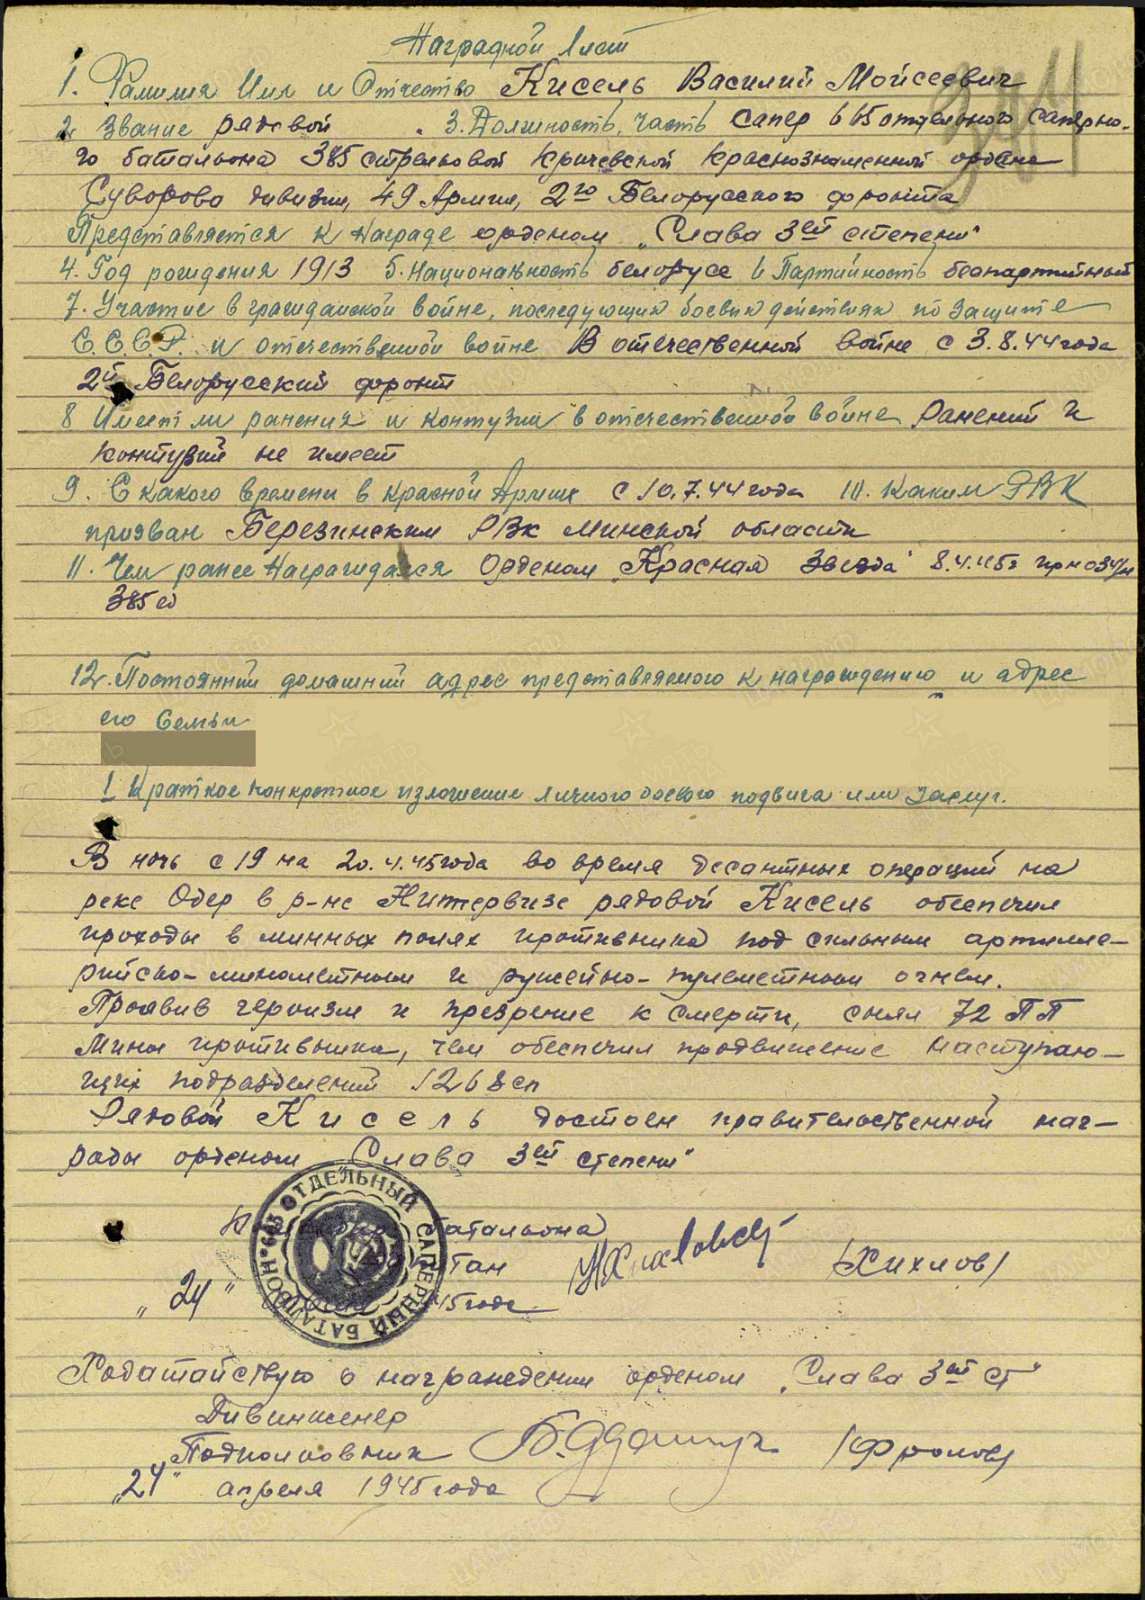 Наградной лист
1. Фамилия Имя и Отчество Кисель Василий Мойсеевич
2. Звание рядовой . 3. Должность, часть сапер 665 отдельного саперно-
го батальона 385 стрелковой Кричевской Краснознаменной ордена
Суворова дивизии, 49 Армии, 2го Белорусского фронта
Представляется к награде орденом "Слава 3ей степени"
4. Год рождения 1913 5. Национальность белорусс 6 Партийность беспартийный
7. Участие в гражданской войне, последующих боевых действиях по защите
С.С.С.Р. и отечественной войне В отечественной войне с 3.8.44 года
2й Белорусский фронт
8 Имеет ли ранения и контузии в отечественной войне Ранений и
контузий не имеет
9. С какого времени в Красной Армии с 10.7.44 года 10. Каким РВК
призван Березинским РВК Минской области
11. Чем ранее награждался Орденом "Красная Звезда" 8.4.45г пр н 034/н
385 сд
12. Постоянный домашний адрес представляемого к награждению и адрес
его семьи
I Краткое конкретное изложение личного боевого подвига или заслуг.
В ночь с 19 на 20.4.45 года во время десантных операций на
реке Одер в р-не Нитервизе рядовой Кисель обеспечил
проходы в минных полях противника под сильным артилле-
рийско-минометным и ружейно-пулеметным огнем.
Проявив героизм и презрение к смерти, снял 72 ПП
мины противника, чем обеспечил продвижение наступаю-
щих подразделений 1268 сп
Рядовой Кисель достоен правительственной наг-
рады орденом "Слава 3ей степени"
батальона
"24" 45 года
(Хихлов)
ОТДЕЛЬНЫЙ САПЕРНЫЙ БАТАЛЬОН № 665
Ходатайствую о награждении орденом "Слава 3ей ст"
Дивинженер
Подполковник (Фролов)
"24" апреля 1945 года